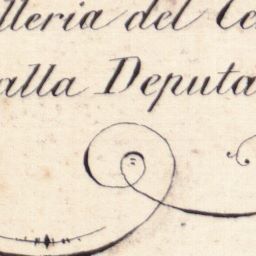 lleria del Ce
alla Deputa